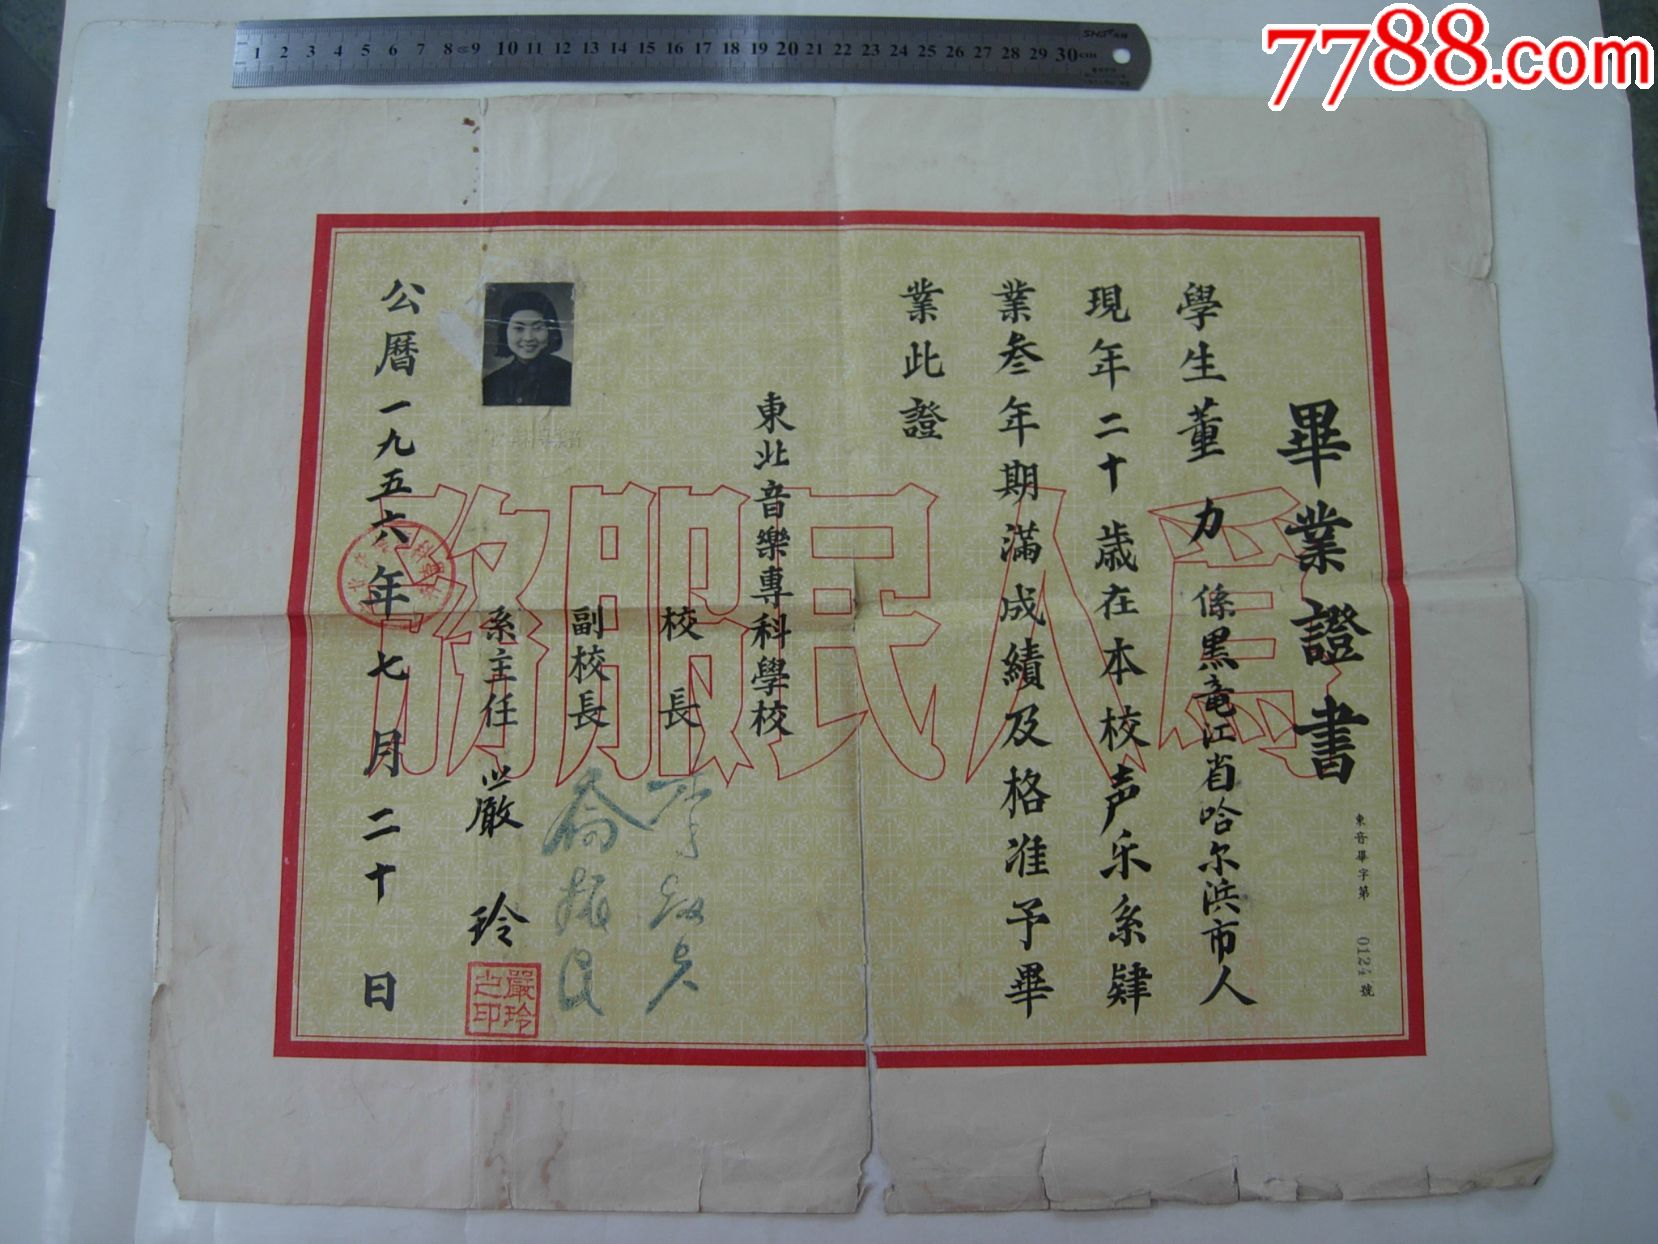 7788.com
畢業證書
東音畢字第 012 號
學生董力係黑竜江省哈尔浜市人
現年二十歲在本校声乐系肄
業叁年期滿成績及格准予畢
業此證
為人民服務
東北音樂專科學校
校長
副校長
系主任 嚴玲
嚴玲之印
公曆一九五六年七月二十日
1 2 3 4 5 6 7 8 9 10 11 12 13 14 15 16 17 18 19 20 21 22 23 24 25 26 27 28 29 30cm